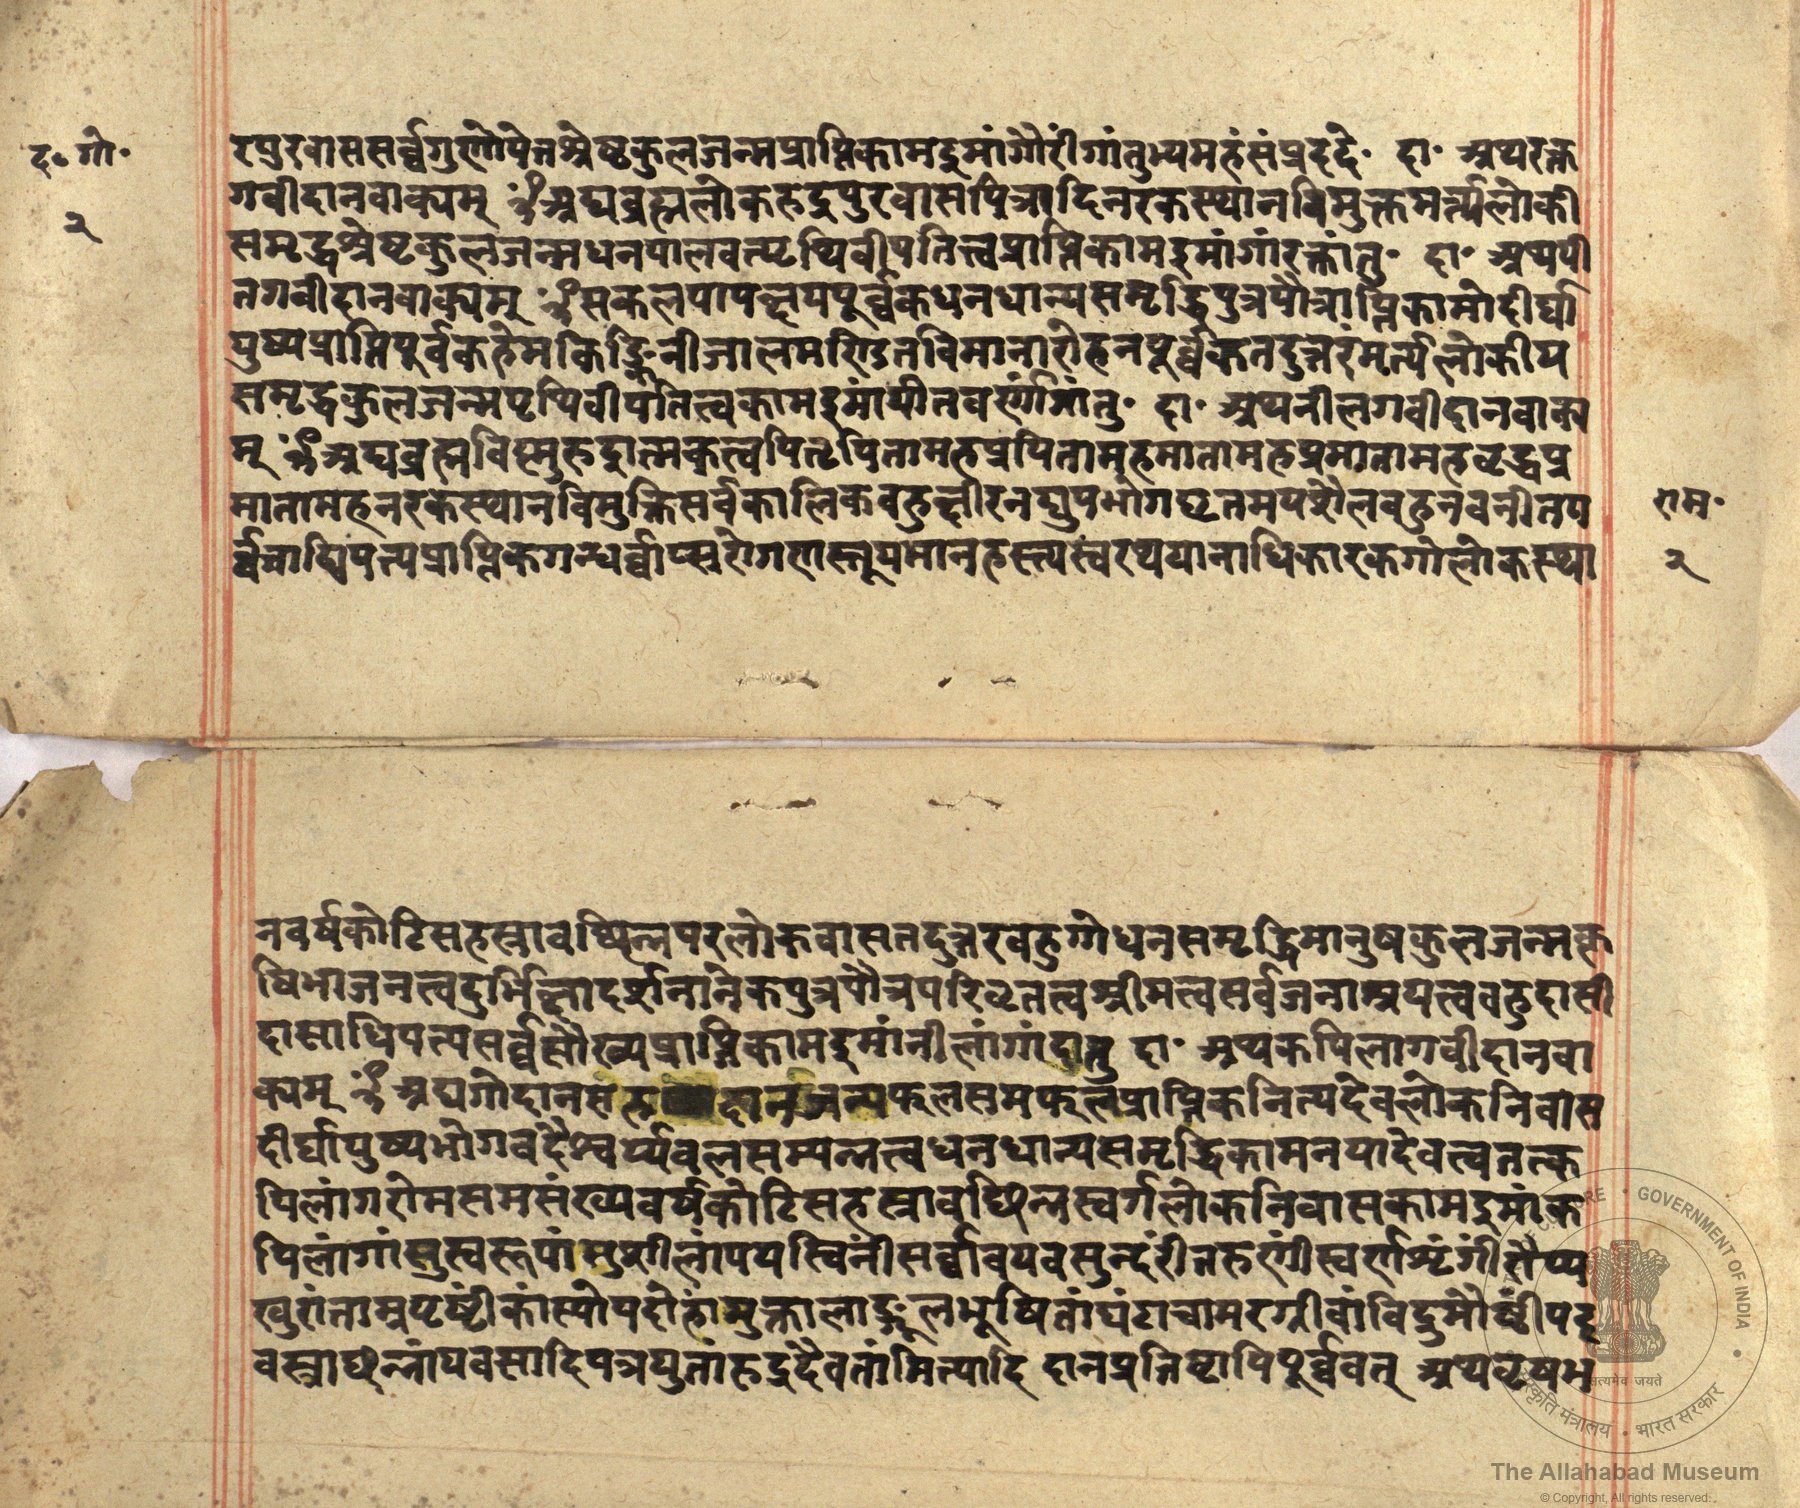 द॰ गो॰
२
रपुरवाससर्व्वगुणोपेतश्रेष्ठकुलजन्मप्राप्तिकामइमांगौरींगांतुभ्यमहंसंप्रददे॰ दा॰ अथरक्त
गवीदानवाक्यम् ॐअद्यब्रह्मलोकरुद्रपुरवासपित्रादिनरकस्थानविमुक्तमर्त्त्यलोकी
समृद्धश्रेष्टकुलजन्मधनपालवत्पृथिवीपतित्त्वप्राप्तिकामइमांगांरक्तांतु॰ दा॰ अथपी
तगवीदानवाक्यम् ॐसकलपापक्षयपूर्व्वकधनधान्यसमृद्धिपुत्रपौत्राप्तिकामोदीर्घा
युष्यप्राप्तिपूर्वकहेमकिङ्किनीजालमण्डितविमानारोहनपूर्व्वकतदुत्तरंमर्त्यलोकीय
समृद्धकुलजन्मपृथिवीपतित्त्वकामइमांपीतवर्णांगांतु॰ दा॰ अथनीलगवीदानवाक्य
म् ॐअद्यब्रह्मविष्णुरुद्रात्मकत्त्वपितृपितामहप्रपितामहमातामहप्रमातामहवृद्धप्र
मातामहनरकस्थानविमुक्तिसर्वकालिकबहुक्षीरनद्युपभोगघृतमयशैलबहुनवनीतप
र्व्वताधिपत्यप्राप्तिकगन्धर्व्वाप्सरोगणस्तूयमानहस्त्यस्वरथयानाधिकारकगोलोकस्था
राम॰
२
नवर्षकोटिसहस्रावच्छिन्नपरलोकवासतदुत्तरबहुगोधनसमृद्धिमानुषकुलजन्मकृ
षिभाजनत्त्वदुर्भिक्षादर्शनानेकपुत्रपौत्रपरिवृतत्वश्रीमत्त्वसर्वजनाश्रयत्त्वबहुदासी
दासाधिपत्यसर्व्वसौख्यप्राप्तिकामइमांनीलांगांदातु दा॰ अथकपिलागवीदानवा
क्यम् ॐ अद्यगोदानसहस्रदानजन्यफलसमफलप्राप्तिकनित्यदेवलोकनिवास
दीर्घायुष्यभोगवदैश्वर्य्यबलसम्पन्नत्त्वधनधान्यसमृद्धिकामनयादेवत्त्वतत्क
पिलांगरोमसमसंख्यवर्षकोटिसहस्रावच्छिन्नस्वर्गलोकनिवासकामइमांक
पिलांगांसुस्वरूपांसुशीलांपयस्विनींसर्व्वावयवसुन्दरींतरुणींस्वर्णशृंगींरौप्य
खुरांताम्रपृष्टींकांस्योपदोहांमुक्तालाङ्गूलभूषितांघंटाचामरग्रीवां
वस्त्राच्छन्नांयवसादिपत्रयुतांरुद्रदैवतामित्यादि दानप्रतिष्टापिपूर्व्ववत् अथवृषभ
सत्यमेव जयते
GOVERNMENT OF INDIA
संस्कृति मंत्रालय
भारत सरकार
The Allahabad Museum
© Copyright, All rights reserved.